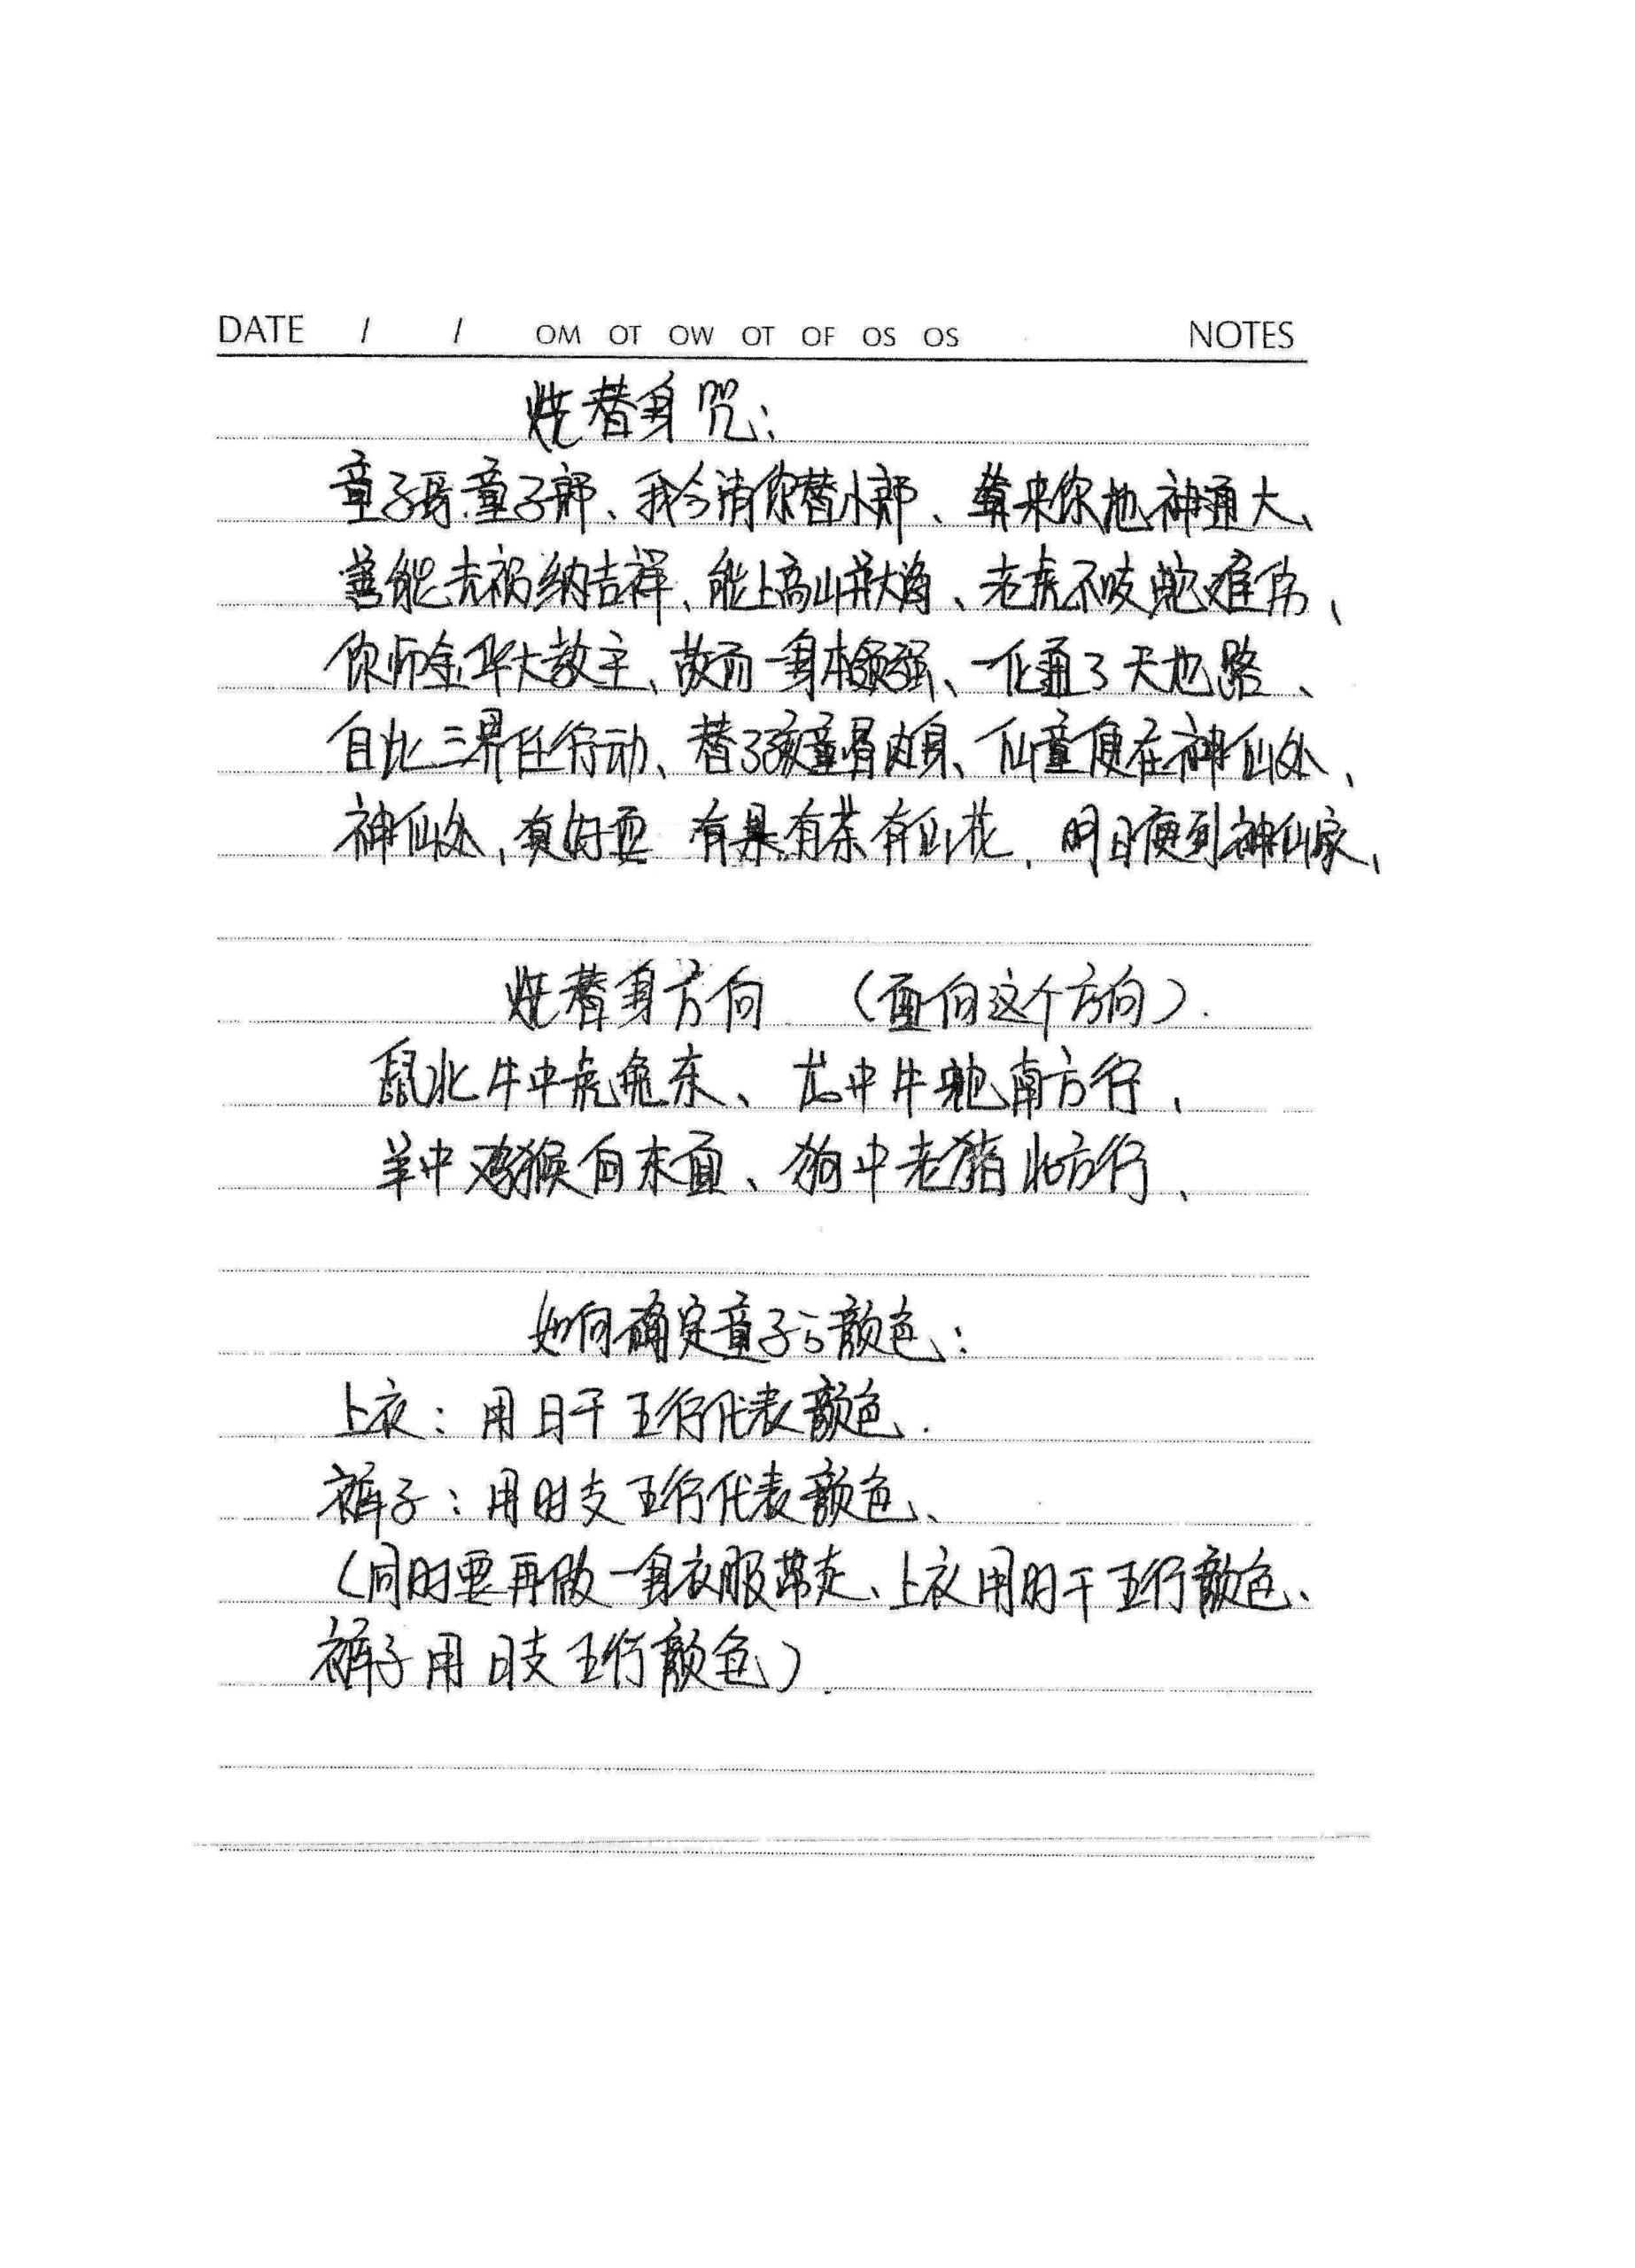 DATE / / OM OT OW OT OF OS OS NOTES
烧替身咒:
童子哥、童子郎、我今请你替小郎、算来你他神通大、
善能去祸纳吉祥、能上高山并大海、老虎不吱蛇难伤、
你师金华大教主、故而一身本领强、一化通了天地路、
自此三界任行动、替了孩童骨肉身、仙童便在神仙处、
神仙处、真好耍 有果有茶有仙花、明日便到神仙家、
烧替身方向 (面向这个方向).
鼠北牛中虎兔东、龙中牛蛇南方行、
羊中鸡猴向木面、狗中老猪北方行、
如何确定童子与颜色:
上衣:用日干五行代表颜色.
裤子:用时支五行代表颜色、
(同时要再做一身衣服带走、上衣用时干五行颜色、
裤子用日支五行颜色).